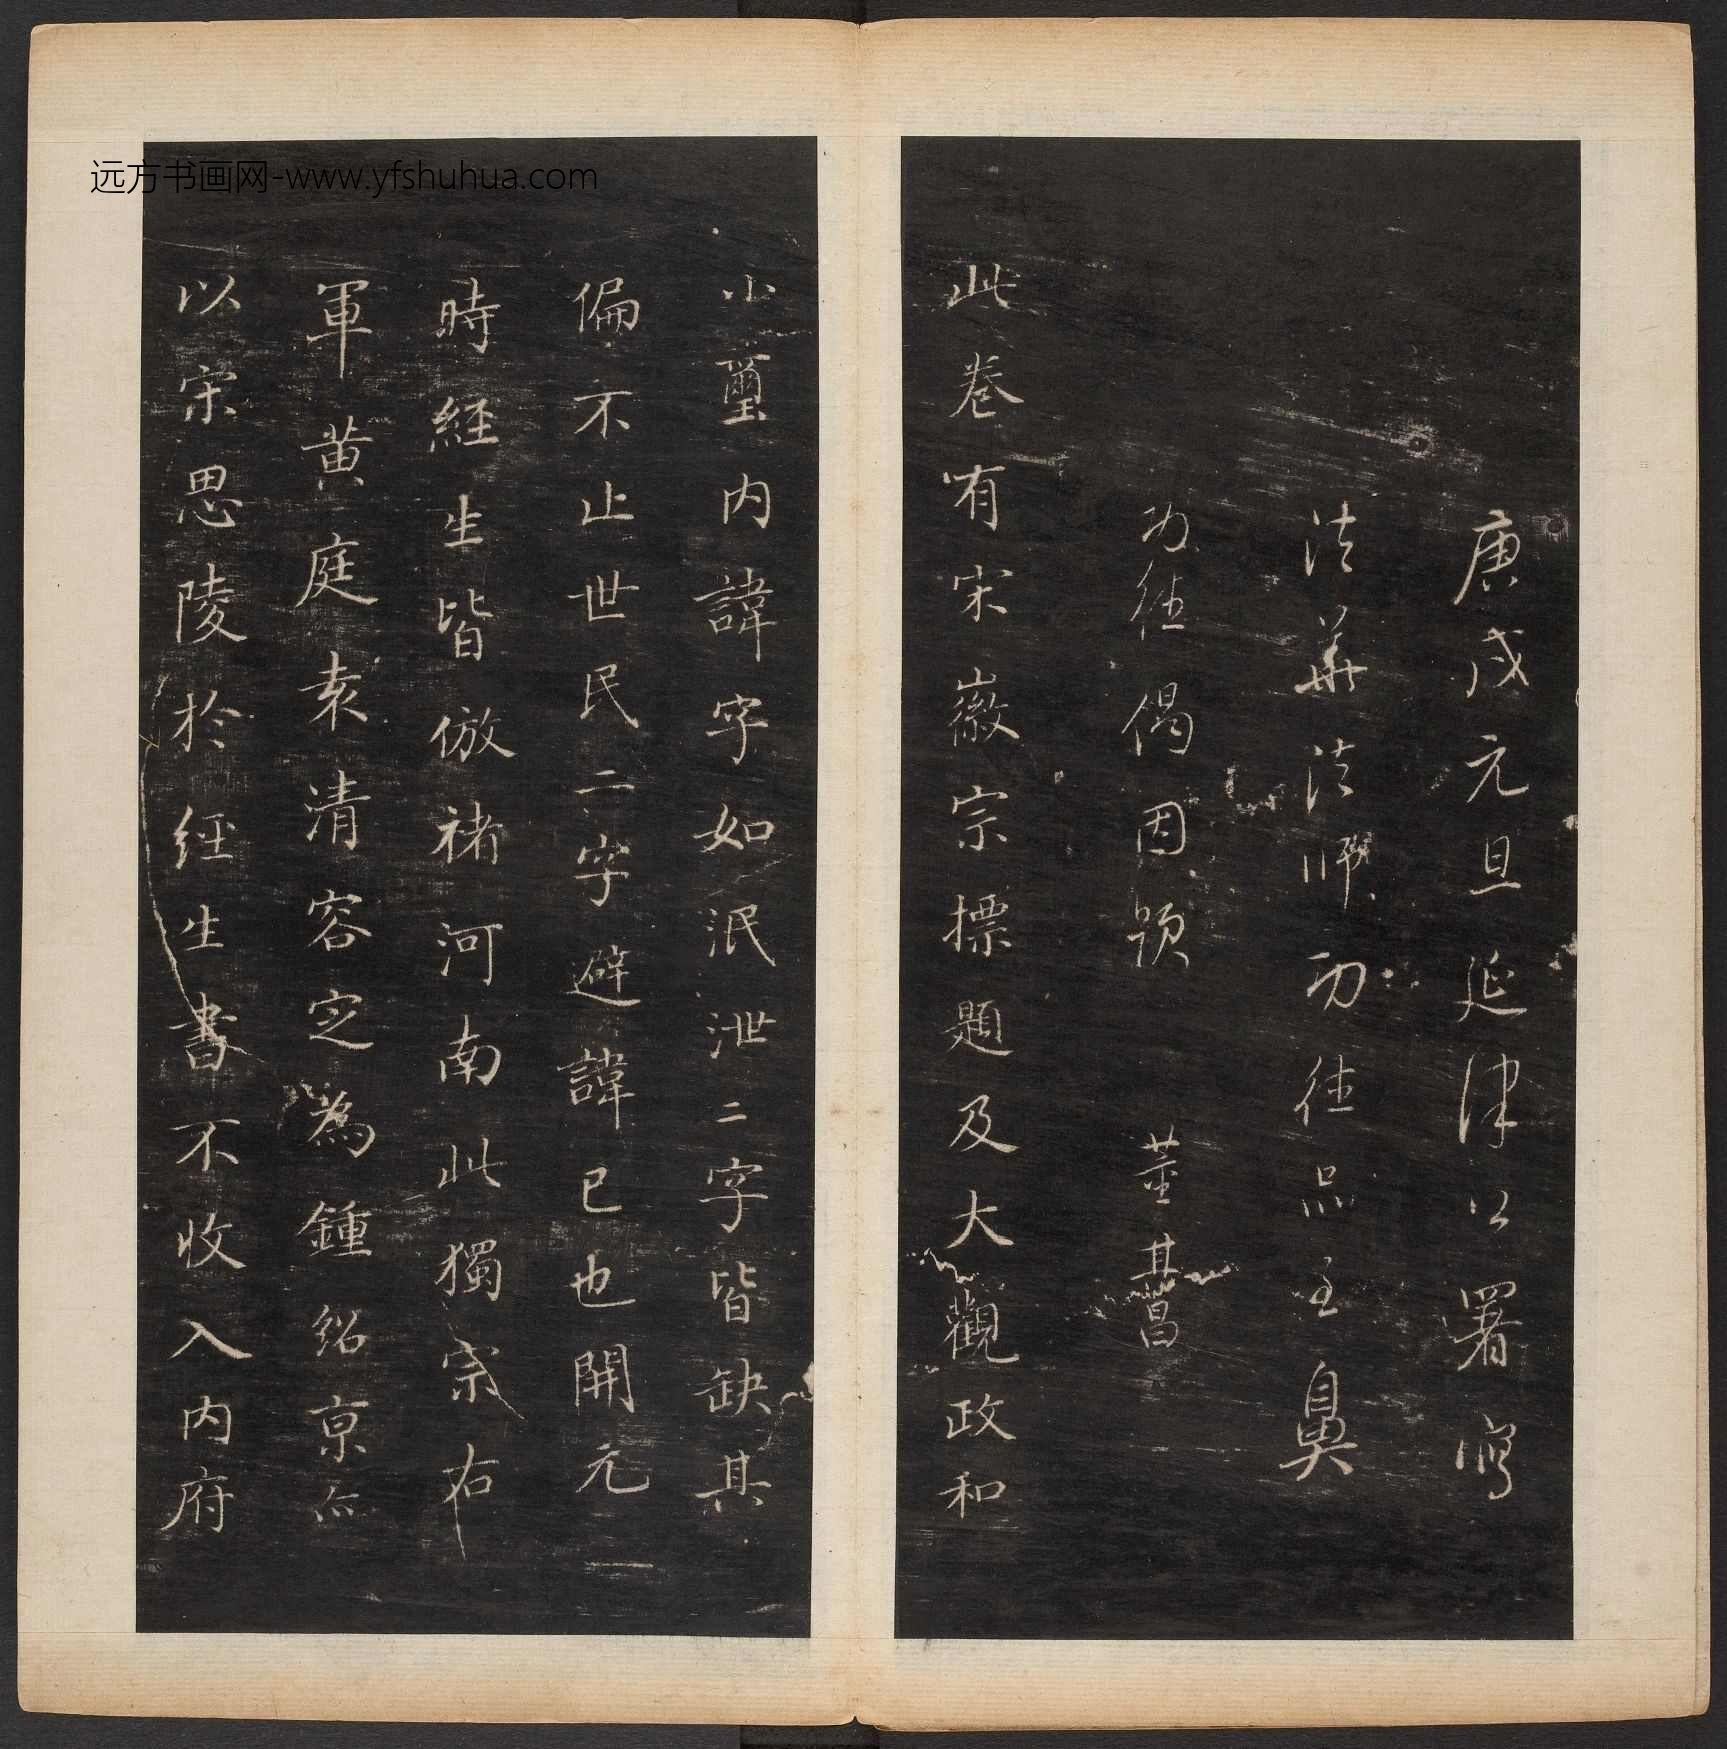 远方书画网-www.yfshuhua.com
庚戌元旦延津公署寫
法華法師功德品至鼻
功德偈因題 董其昌
此卷有宋徽宗標題及大觀政和
小璽内諱字如泯泄二字皆缺其
偏不止世民二字避諱已也開元一
時經生皆倣褚河南此獨宗右
軍黄庭袁清容定為鍾紹京亦
以宋思陵於經生書不收入内府